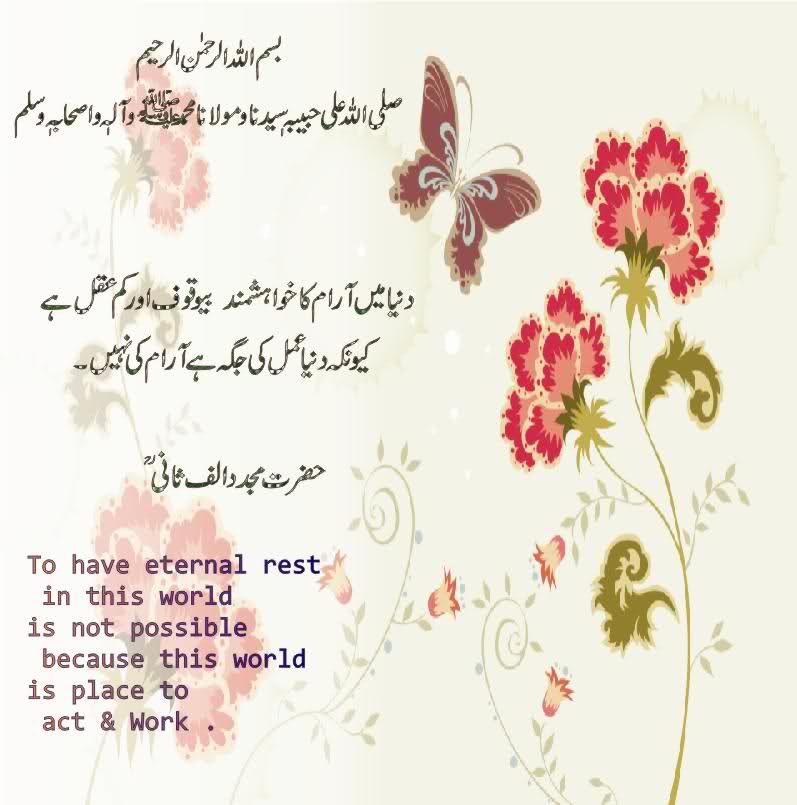 بسم اللہ الرحمٰن الرحیم
صلی اللہ علی حبیبہٖ سیدنا و مولانا محمد ﷺ وآلہٖ واصحابہٖ وسلم
دنیا میں آرام کا خواہشمند بیوقوف اور کم عقل ہے
کیونکہ دنیا عمل کی جگہ ہے آرام کی نہیں۔
حضرت مجدد الف ثانیؒ
To have eternal rest
in this world
is not possible
because this world
is place to
act & Work .